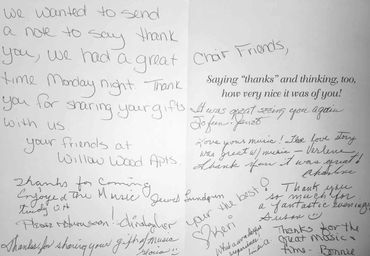 We wanted to send
a note to say thank
you, we had a great
time Monday night. Thank
you for sharing your gifts
with us.
your friends at
Willow Wood Apts.
Thanks for Coming
Enjoyed the Music
Trudy
Jewel Lundgren
Please return soon! Christopher
Thanks for sharing your gift of music
Gloria
Choir Friends,
Saying "thanks" and thinking, too,
how very nice it was of you!
It was great seeing you again
Love your music! The love story
was great w/ music - Verlene
Thank you it was great!
your the best!
Keri
Thank you
so much for
a fantastic evening
Susan
What a wonderful
experience
Thanks for the
great music &
time - Bonnie